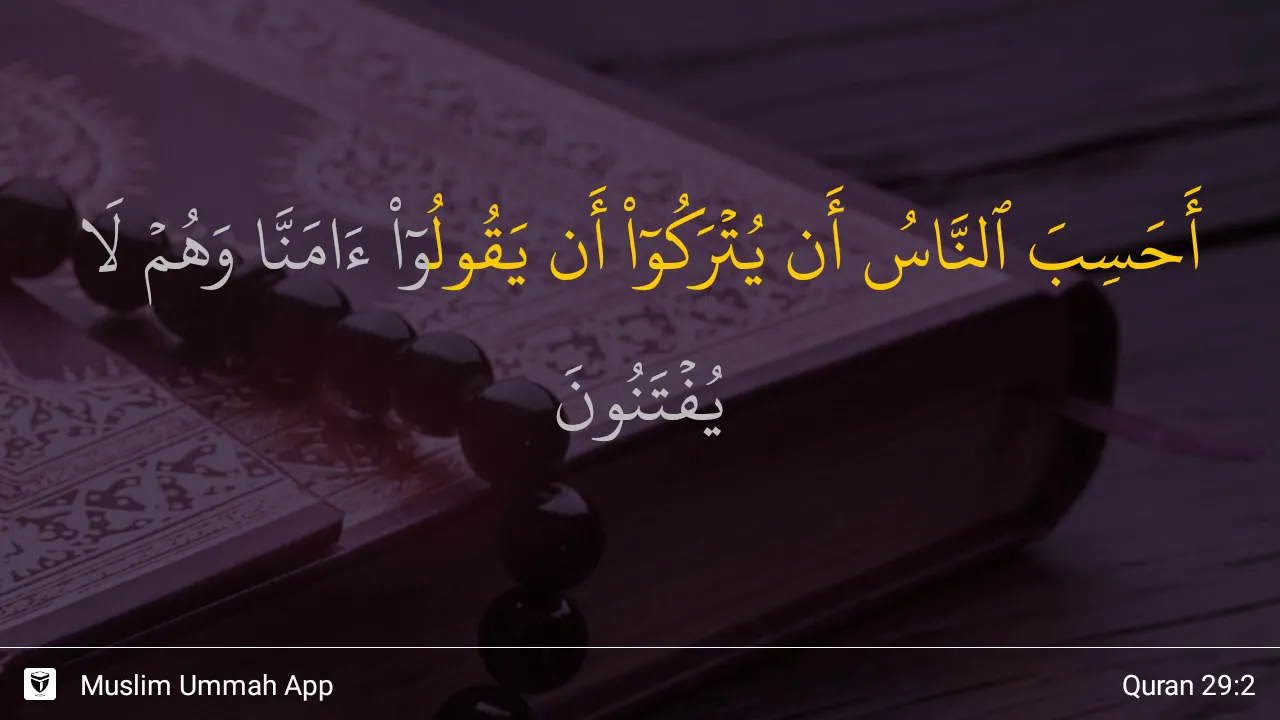 أَحَسِبَ ٱلنَّاسُ أَن يُتۡرَكُوٓاْ أَن يَقُولُوٓاْ ءَامَنَّا وَهُمۡ لَا
يُفۡتَنُونَ
Muslim Ummah App
Quran 29:2